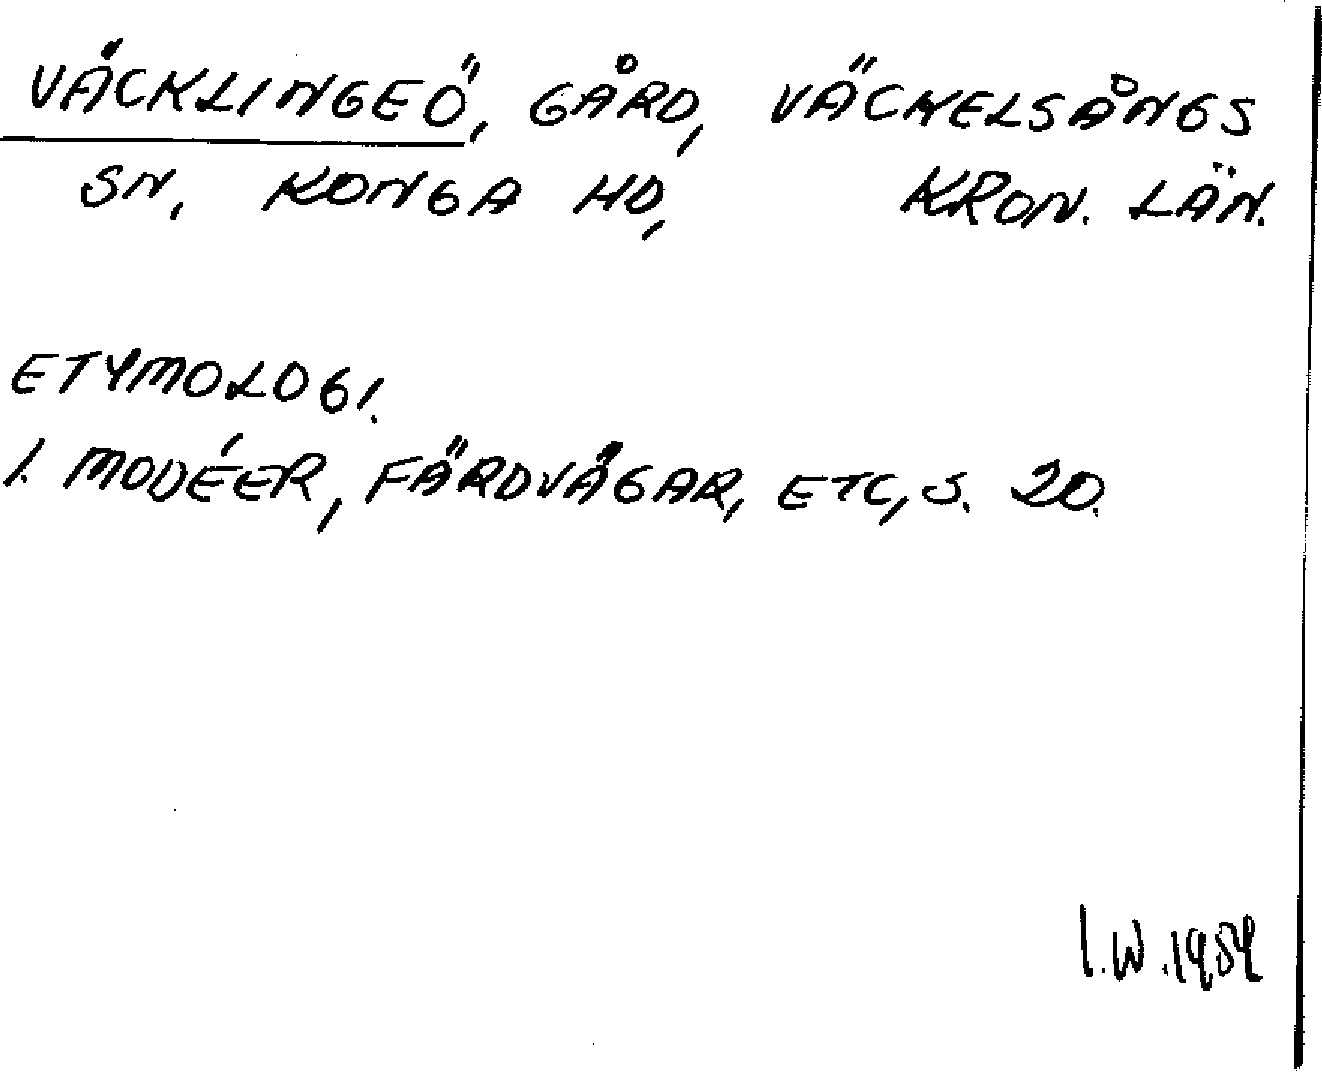 VÄCKLINGEÖ, GÅRD, VÄCKELSÅNGS
SN, KONGA HD, KRON. LÄN.
ETYMOLOGI.
I. MODÉER, FÄRDVÄGAR, ETC, S. 20.
I.W.1959